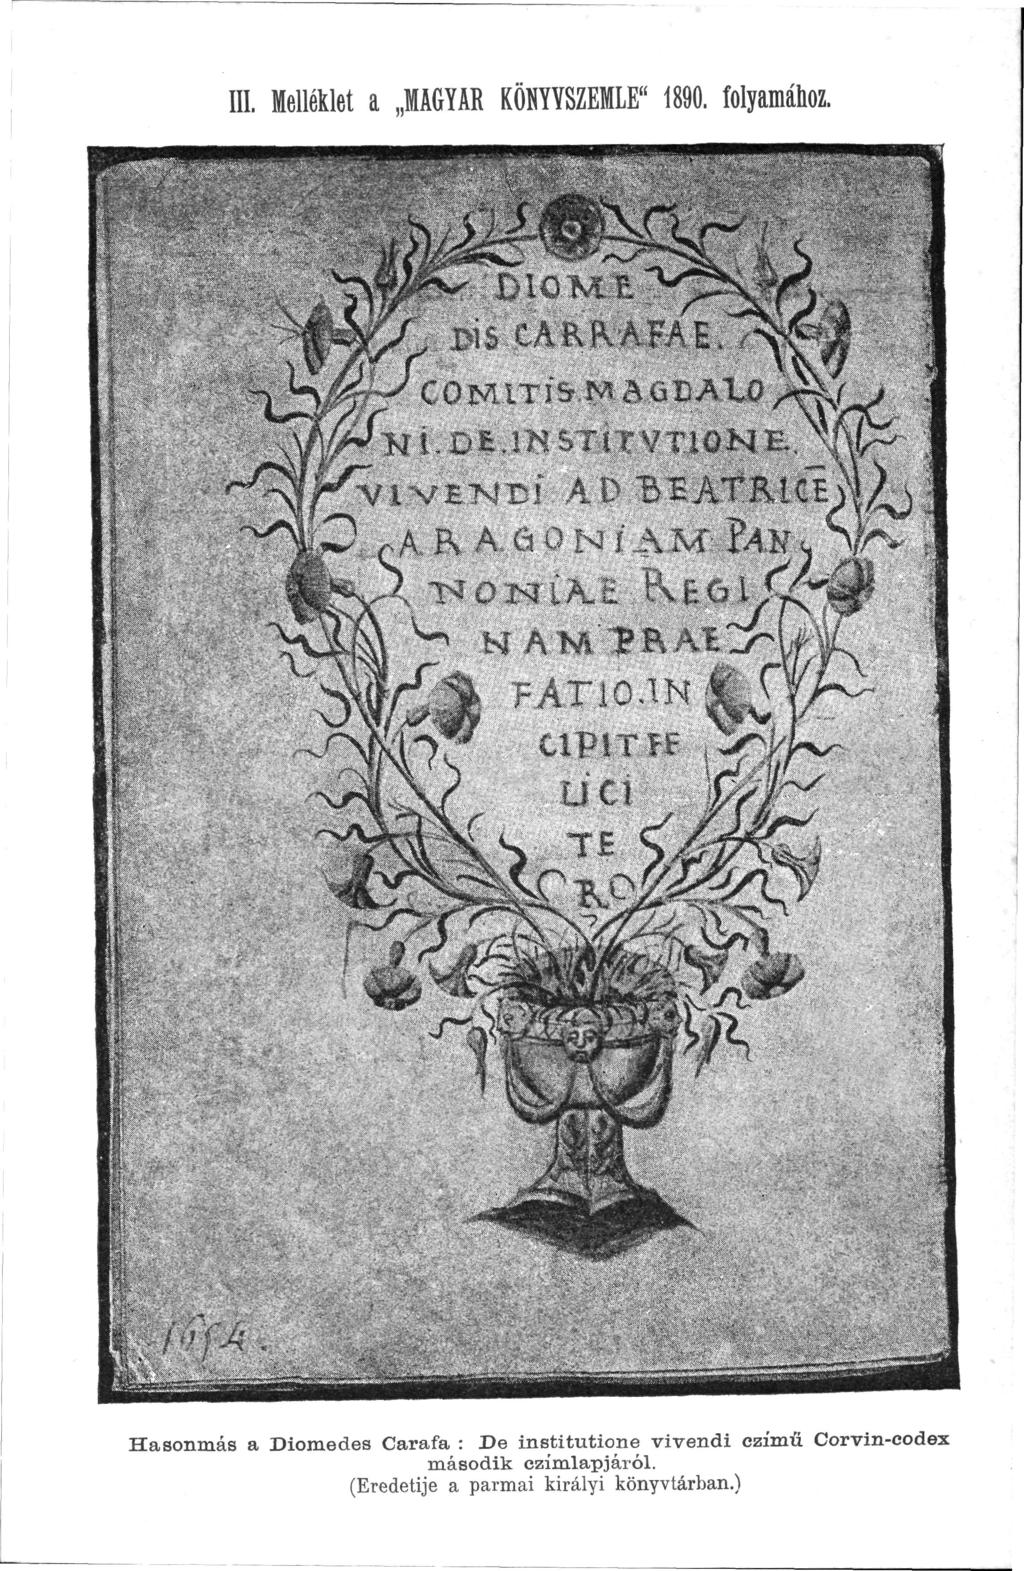 III. Melléklet a „MAGYAR KÖNYVSZEMLE“ 1890. folyamához.
DIOME
DIS CARRAFAE.
COMITIS.MAGDALO
NI.DE.INSTITVTIONE.
VIVENDI AD BEATRICĒ
ARAGONIAM PAN
NONIAE REGI
NAM PRAE
FATIO.IN
CIPIT FE
LICI
TE
R
1654.
Hasonmás a Diomedes Carafa : De institutione vivendi czímű Corvin-codex
második czímlapjáról.
(Eredetije a parmai királyi könyvtárban.)